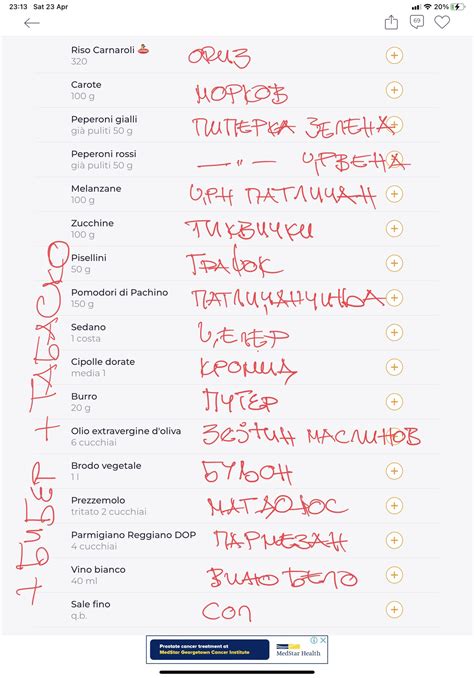 23:13 Sat 23 Apr 20%
69
Riso Carnaroli ОРИЗ
320
Carote МОРКОВ
100 g
Peperoni gialli ПИПЕРКА ЗЕЛЕНА
già puliti 50 g
Peperoni rossi — " — ЧРВЕНА
già puliti 50 g
Melanzane ЦРН ПАТЛИЧАН
100 g
Zucchine ТИКВИЧКИ
100 g
Pisellini ГРАШОК
50 g
Pomodori di Pachino ПАТЛИЏАНЧИЊА
150 g
Sedano ЦЕЛЕР
1 costa
Cipolle dorate КРОМИД
media 1
Burro ПУТЕР
20 g
Olio extravergine d'oliva ЗЕЈТИН МАСЛИНОВ
6 cucchiai
Brodo vegetale БУЉОН
1 l
Prezzemolo МАГДОНОС
tritato 2 cucchiai
Parmigiano Reggiano DOP ПАРМЕЗАН
4 cucchiai
Vino bianco ВИНО БЕЛО
40 ml
Sale fino СОЛ
q.b.
+ БИБЕР + ТАБАСКО
Prostate cancer treatment at
MedStar Georgetown Cancer Institute
MedStar Health